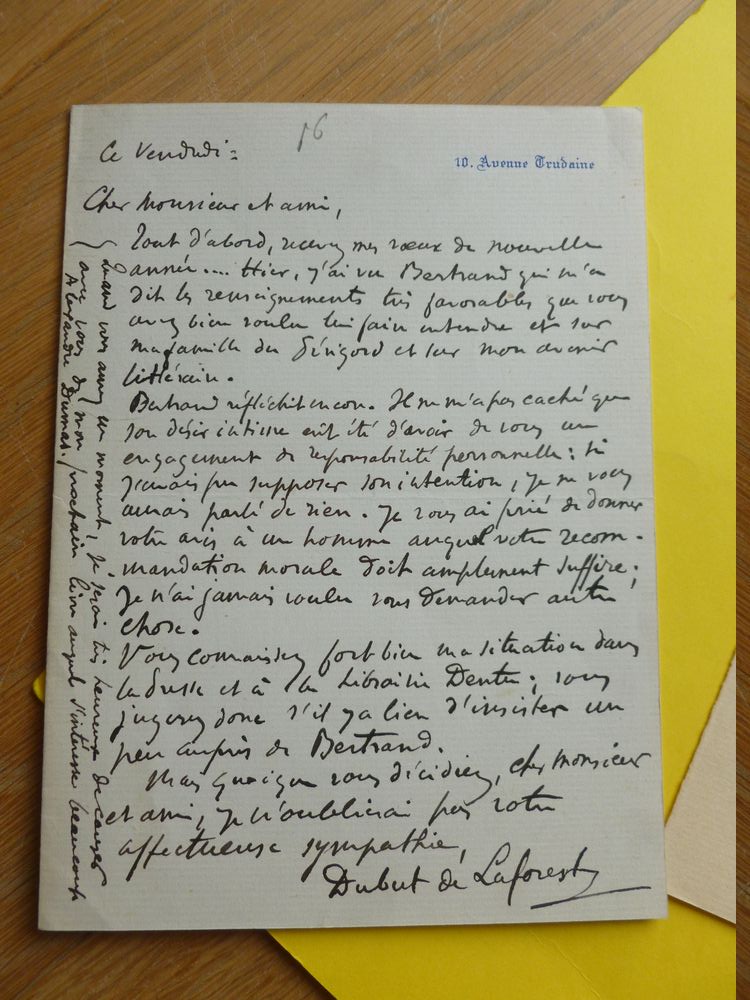 Ce Vendredi =
16
10. Avenue Trudaine
Cher Monsieur et ami,
Tout d'abord, recevez mes vœux de nouvelle
année.... Hier, j'ai vu Bertrand qui m'a
dit les renseignements très favorables que vous
avez bien voulu lui faire entendre et sur
ma famille du Périgord et sur mon avenir
littéraire.
Bertrand réfléchit encore. Il ne m'a pas caché que
son désir intime eût été d'avoir de vous un
engagement de responsabilité personnelle : si
j'avais pu supposer son intention, je ne vous
aurais parlé de rien. Je vous ai prié de donner
votre avis à un homme auquel votre recom-
mandation morale doit amplement suffire ;
je n'ai jamais voulu vous demander autre
chose.
Vous connaissez fort bien ma situation dans
la Presse et à la librairie Dentu ; vous
jugerez donc s'il y a lieu d'insister un
peu auprès de Bertrand.
Mais quoique vous décidiez, cher Monsieur
et ami, je n'oublierai pas votre
affectueuse sympathie,
Dubut de Laforest
Quand vous aurez un moment, je serai très heureux de causer
avec vous de mon prochain livre auquel s'intéresse beaucoup
Alexandre Dumas.